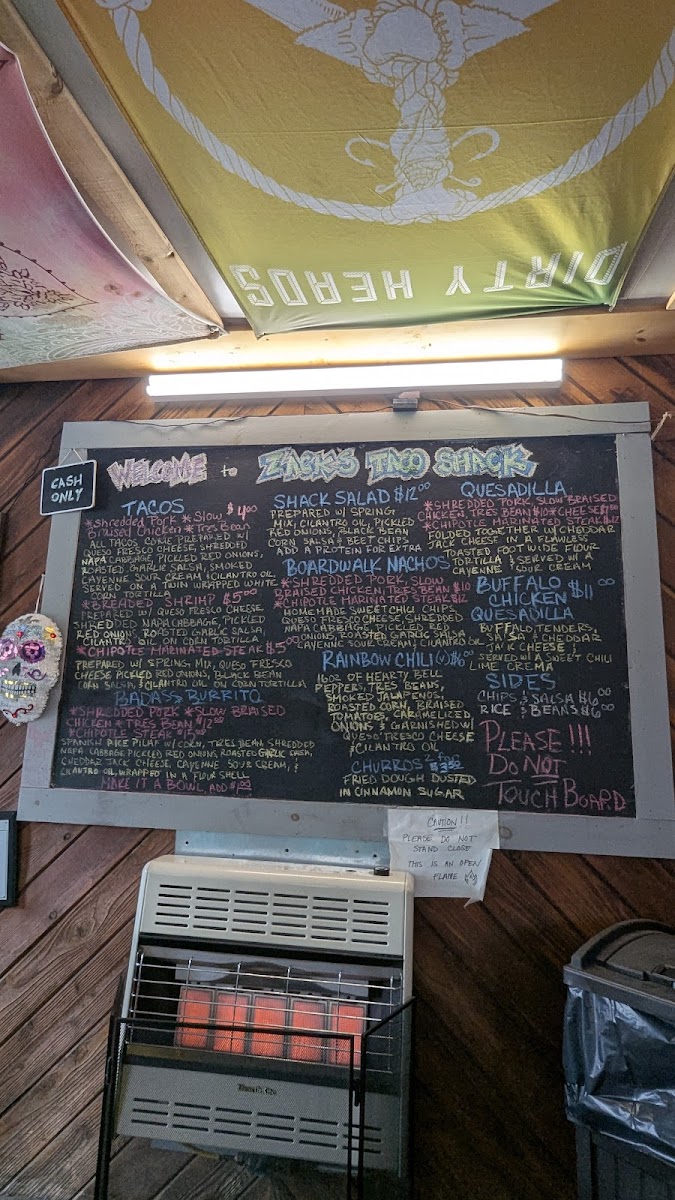 DIRTY HEADS
CASH
ONLY
WELCOME to ZACK'S TACO SHACK
TACOS
*Shredded Pork *Slow $4.00
Braised Chicken *Tres Bean
ALL TACOS COME PREPARED W/
QUESO FRESCO CHEESE, SHREDDED
NAPA CABBAGE, PICKLED RED ONIONS,
ROASTED GARLIC SALSA, SMOKED
CAYENNE SOUR CREAM & CILANTRO OIL.
SERVED ON A TWIN WRAPPED WHITE
CORN TORTILLA
*BREADED SHRIMP $5.00
PREPARED W/ QUESO FRESCO CHEESE
SHREDDED NAPA CABBAGE, PICKLED
RED ONION, ROASTED GARLIC SALSA,
CILANTRO OIL ON CORN TORTILLA
*CHIPOTLE MARINATED STEAK $5.00
PREPARED W/ SPRING MIX, QUESO FRESCO
CHEESE PICKLED RED ONIONS, BLACK BEAN
CORN SALSA, & CILANTRO OIL ON CORN TORTILLA
BADASS BURRITO
*SHREDDED PORK *SLOW BRAISED
CHICKEN *TRES BEAN $12.50
*CHIPOTLE STEAK $15.00
SPANISH RICE PILAF W/ CORN, TRES BEAN SHREDDED
NAPA CABBAGE PICKLED RED ONIONS, ROASTED GARLIC SALSA,
CHEDDAR JACK CHEESE, CAYENNE SOUR CREAM, &
CILANTRO OIL, WRAPPED IN A FLOUR SHELL
MAKE IT A BOWL, ADD $1.00
SHACK SALAD $12.00
PREPARED W/ SPRING
MIX, CILANTRO OIL, PICKLED
RED ONIONS, BLACK BEAN
CORN SALSA & BEET CHIPS
ADD A PROTEIN FOR EXTRA
BOARDWALK NACHOS
*SHREDDED PORK, SLOW
BRAISED CHICKEN, TRES BEAN $10
*CHIPOTLE MARINATED STEAK $12
HOMEMADE SWEET CHILI CHIPS,
QUESO FRESCO CHEESE, SHREDDED
NAPA CABBAGE, PICKLED RED
ONIONS, ROASTED GARLIC SALSA
CAYENNE SOUR CREAM & CILANTRO OIL
RAINBOW CHILI (V) $6.00
16OZ OF HEARTY BELL
PEPPERS, TRES BEANS,
SMOKED JALAPENO,
ROASTED CORN, BRAISED
TOMATOES, CARAMELIZED
ONIONS & GARNISHED W/
QUESO FRESCO CHEESE
& CILANTRO OIL
CHURROS 2 FOR $3.50
FRIED DOUGH DUSTED
IN CINNAMON SUGAR
QUESADILLA
*SHREDDED PORK SLOW BRAISED
CHICKEN, TRES BEAN $10 *CHEESE
*CHIPOTLE MARINATED STEAK $12
FOLDED TOGETHER W/ CHEDDAR
JACK CHEESE IN A FLAWLESS
TOASTED FOOT WIDE FLOUR
TORTILLA & SERVED W/ A
CAYENNE SOUR CREAM
BUFFALO
CHICKEN $11.00
QUESADILLA
BUFFALO TENDERS,
SALSA & CHEDDAR
JACK CHEESE &
SERVED W/ A SWEET CHILI
LIME CREMA
SIDES
CHIPS & SALSA $6.00
RICE & BEANS $6.00
PLEASE!!!
DO NOT
TOUCH BOARD
CAUTION!!
PLEASE DO NOT
STAND CLOSE
THIS IS AN OPEN
FLAME